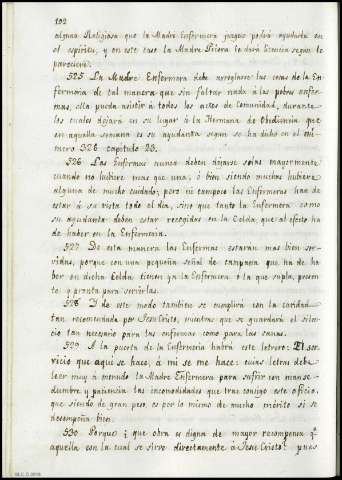 102
alguna Religiosa que la Madre Enfermera juzgue podrá ayudarla en
el espiritu, y en este caso la Madre Priora le dará licencia segun le
pareciere.
525 La Madre Enfermera debe arreglarse las cosas de la En-
fermeria de tal manera que sin faltar nada á las pobres enfer-
mas, ella pueda asistir á todos los actos de Comunidad, durante
los cuales dejará en su lugar á la Hermana de Obediencia que
en aquella semana es su ayudanta segun se ha dicho en el nú-
mero 326 capitulo 25.
526 Las Enfermas nunca deben dejarse solas mayormente
cuando no hubiere mas que una, ó bien siendo muchas hubiere
alguna de mucho cuidado; pero ni tampoco las Enfermeras han de
estar á su vista todo el dia, sino que tanto la Enfermera como
su ayudanta deben estar recogidas en la Celda, que al efecto ha
de haber en la Enfermeria.
527 De esta manera las Enfermas estarán mas bien ser-
vidas, porque con una pequeña señal de campana que ha de ha-
ber en dicha Celda tienen ya la Enfermera ó la que supla, presen-
te y pronta para servirlas.
528 Y de este modo tambien se cumplirá con la caridad
tan recomendada por Jesu-Cristo, mientras que se guardará el silen-
cio tan necesario para las enfermas como para las sanas.
529 A la puerta de la Enfermeria habrá este letrero: El ser-
vicio que aqui se hace, á mi se me hace: cuias letras debe
leer muy á menudo la Madre Enfermera para sufrir con manse-
dumbre y paciencia las incomodidades que trae consigo este oficio,
que siendo de gran peso es por lo mismo de mucho mérito si se
desempeña bien.
530 Porque ¿que obra es digna de mayor recompensa qe
aquella con la cual se sirve directamente á Jesu-Cristo? pues